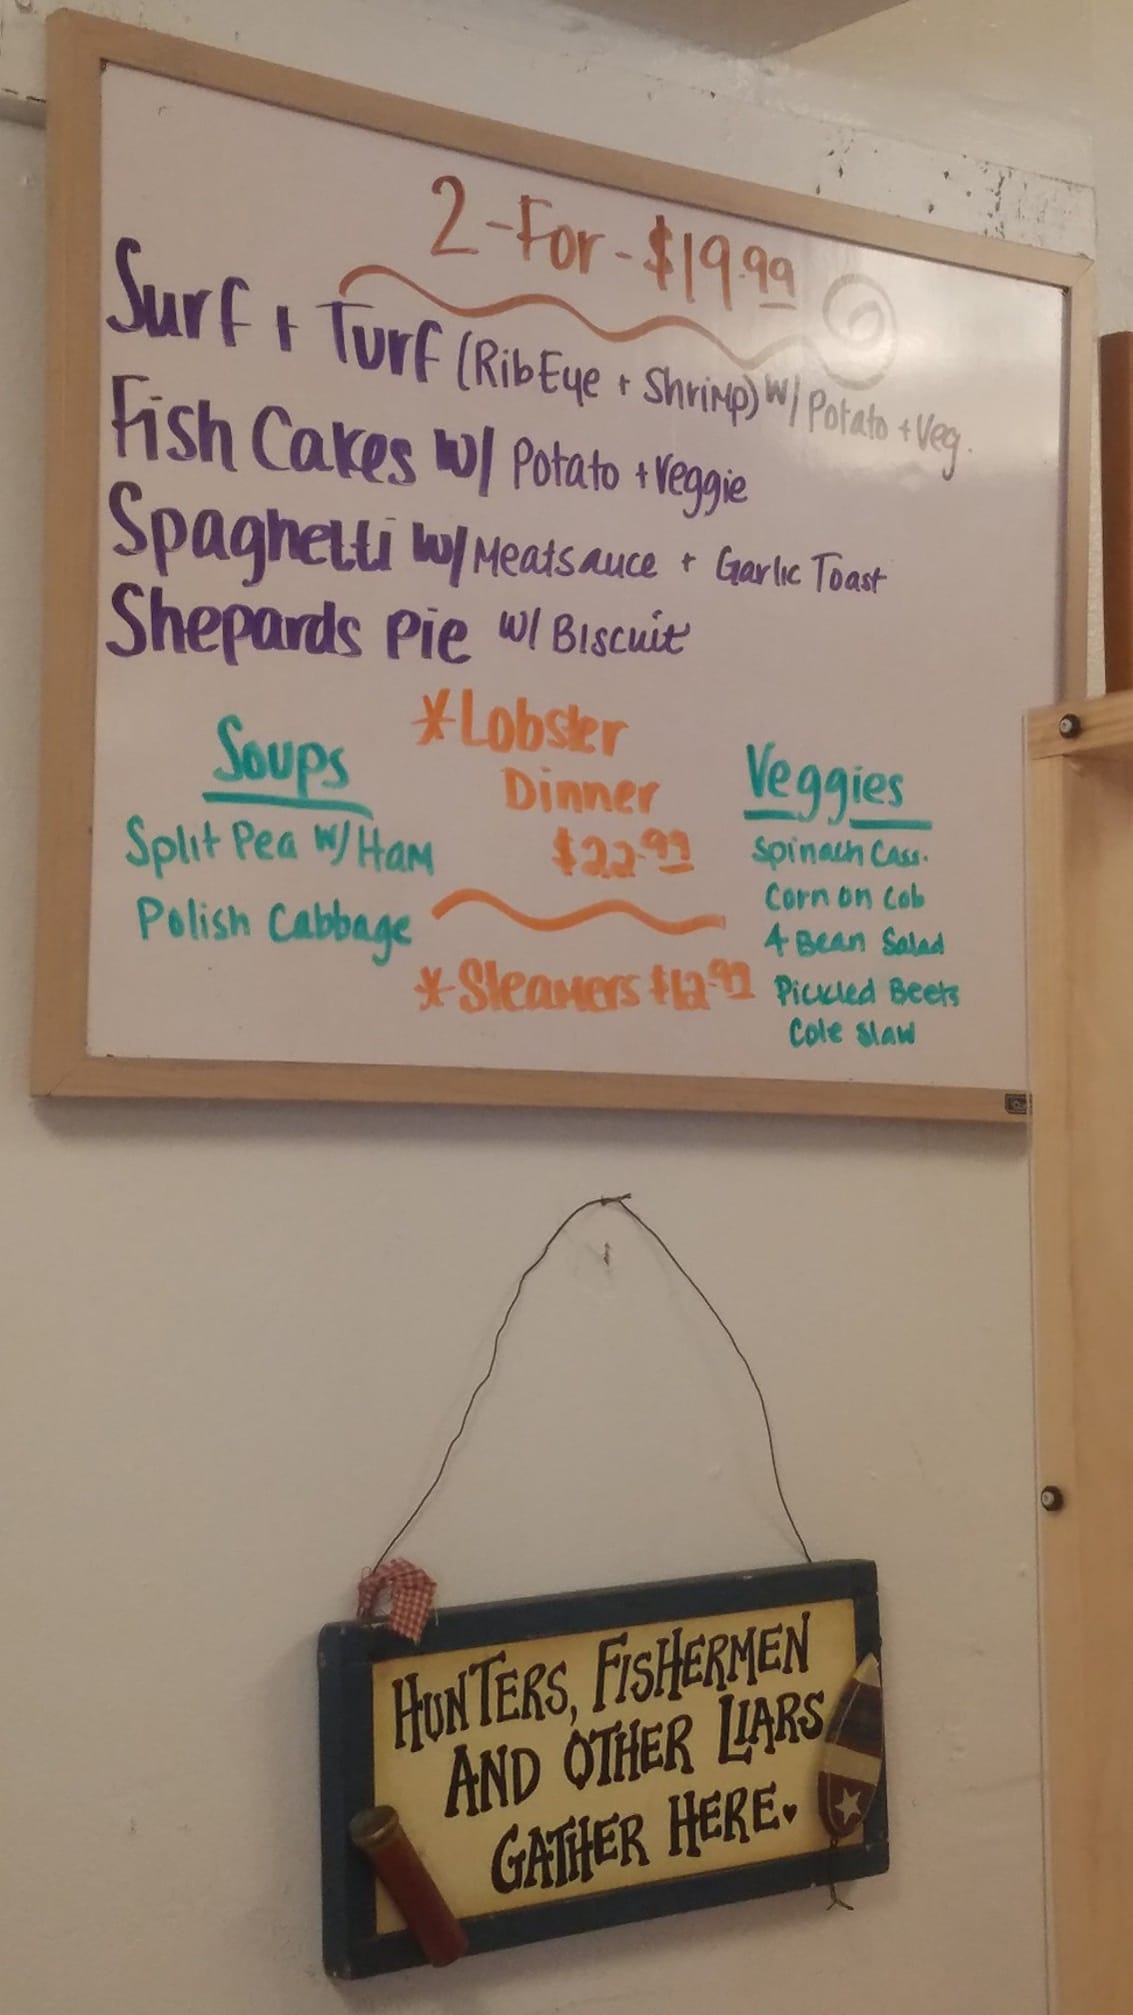 2-For-$19.99
Surf + Turf (RibEye + Shrimp) w/ Potato + Veg.
Fish Cakes w/ Potato + Veggie
Spaghetti w/ Meatsauce + Garlic Toast
Shepards Pie w/ Biscuit
Soups
Split Pea w/ Ham
Polish Cabbage
*Lobster
Dinner
$22.99
*Steamers $12.99
Veggies
Spinach Cass.
Corn on Cob
4 Bean Salad
Pickled Beets
Cole Slaw
HUNTERS, FISHERMEN
AND OTHER LIARS
GATHER HERE.